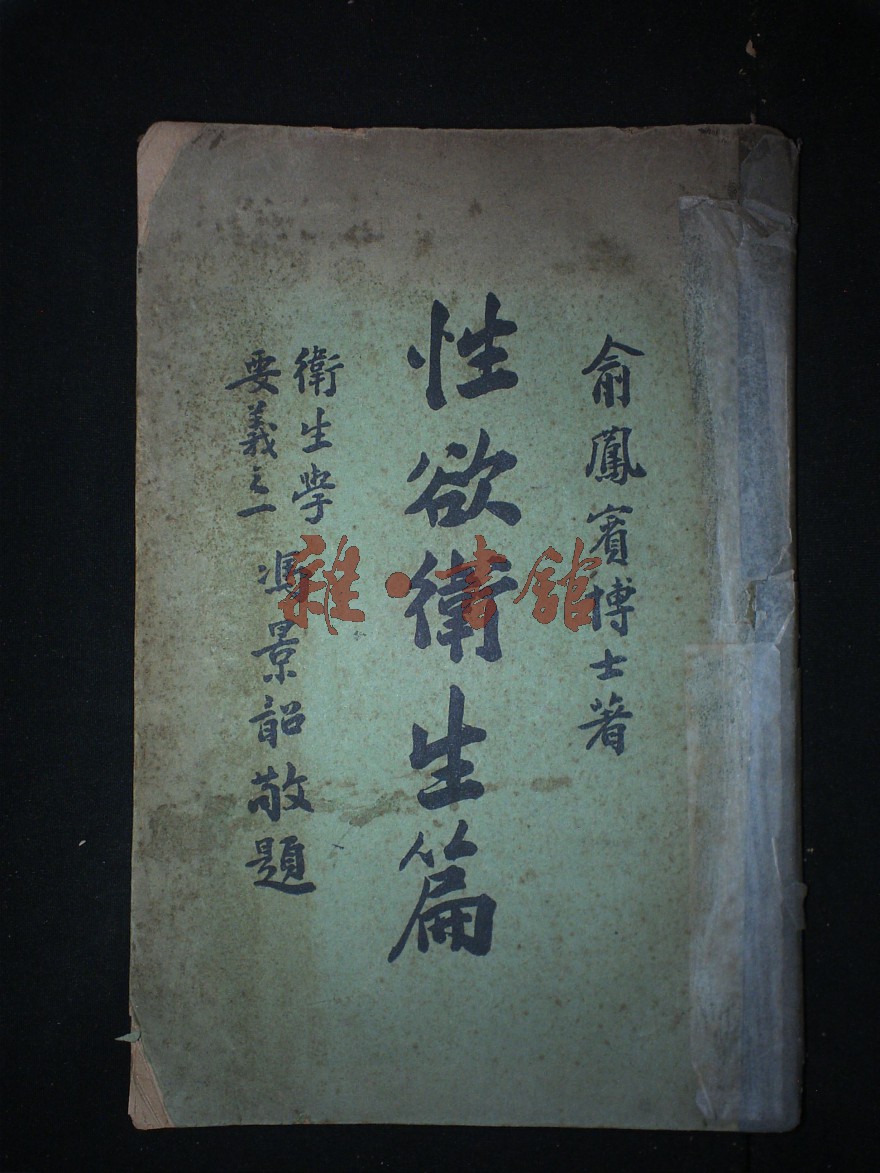 俞鳳賓博士著
性欲衛生篇
衛生學
要義之一
馮景韶敬題
雜·書館